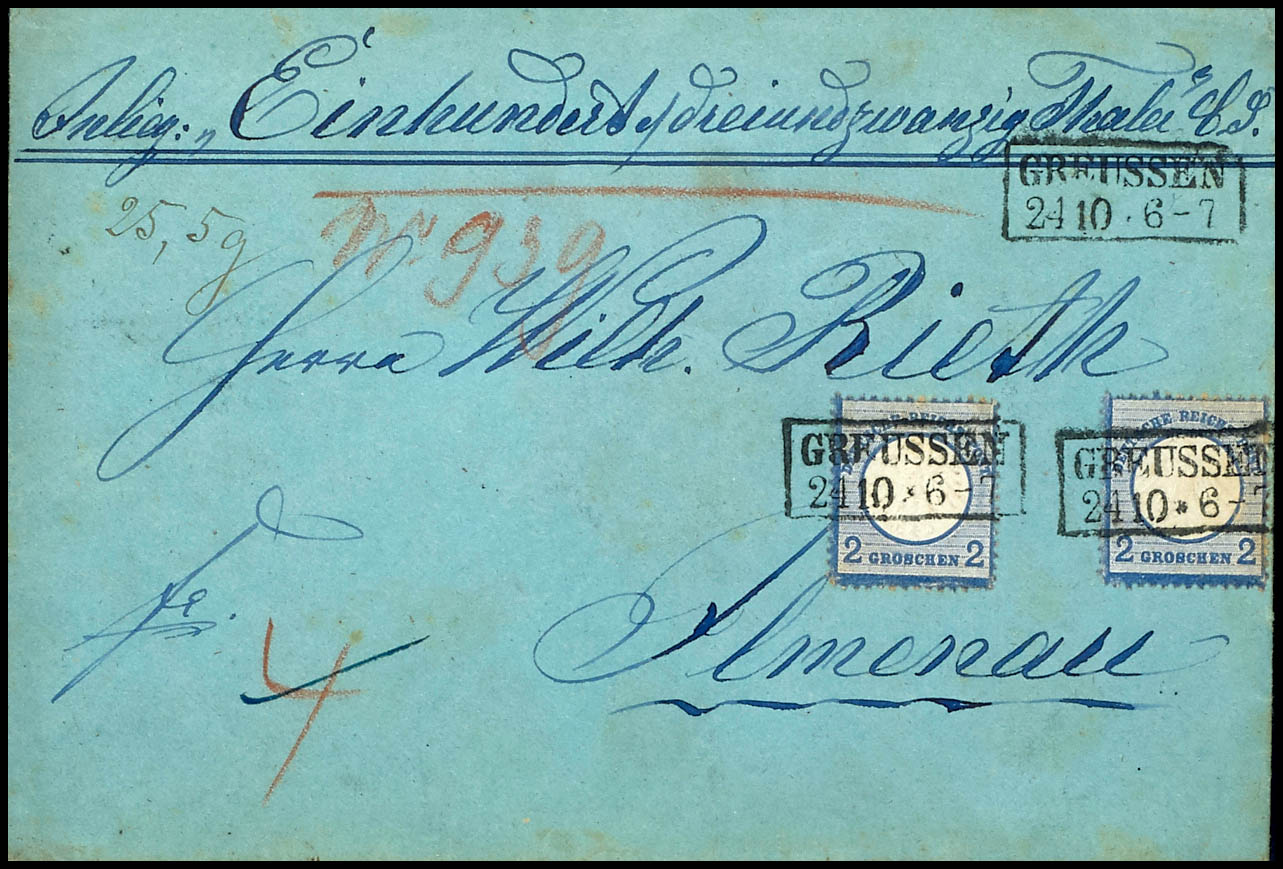 Inlieg: „ Einhundert / dreiundzwanzig Thaler C. S.
GREUSSEN
24 10 · 6 - 7
25,5 g
Nr 939
Herrn Wilh. Rieth
GREUSSEN
24 10 * 6 - 7
DEUTSCHE REICHS-POST
2 GROSCHEN 2
GREUSSEN
24 10 * 6 - 7
DEUTSCHE REICHS-POST
2 GROSCHEN 2
fr.
4
Ilmenau